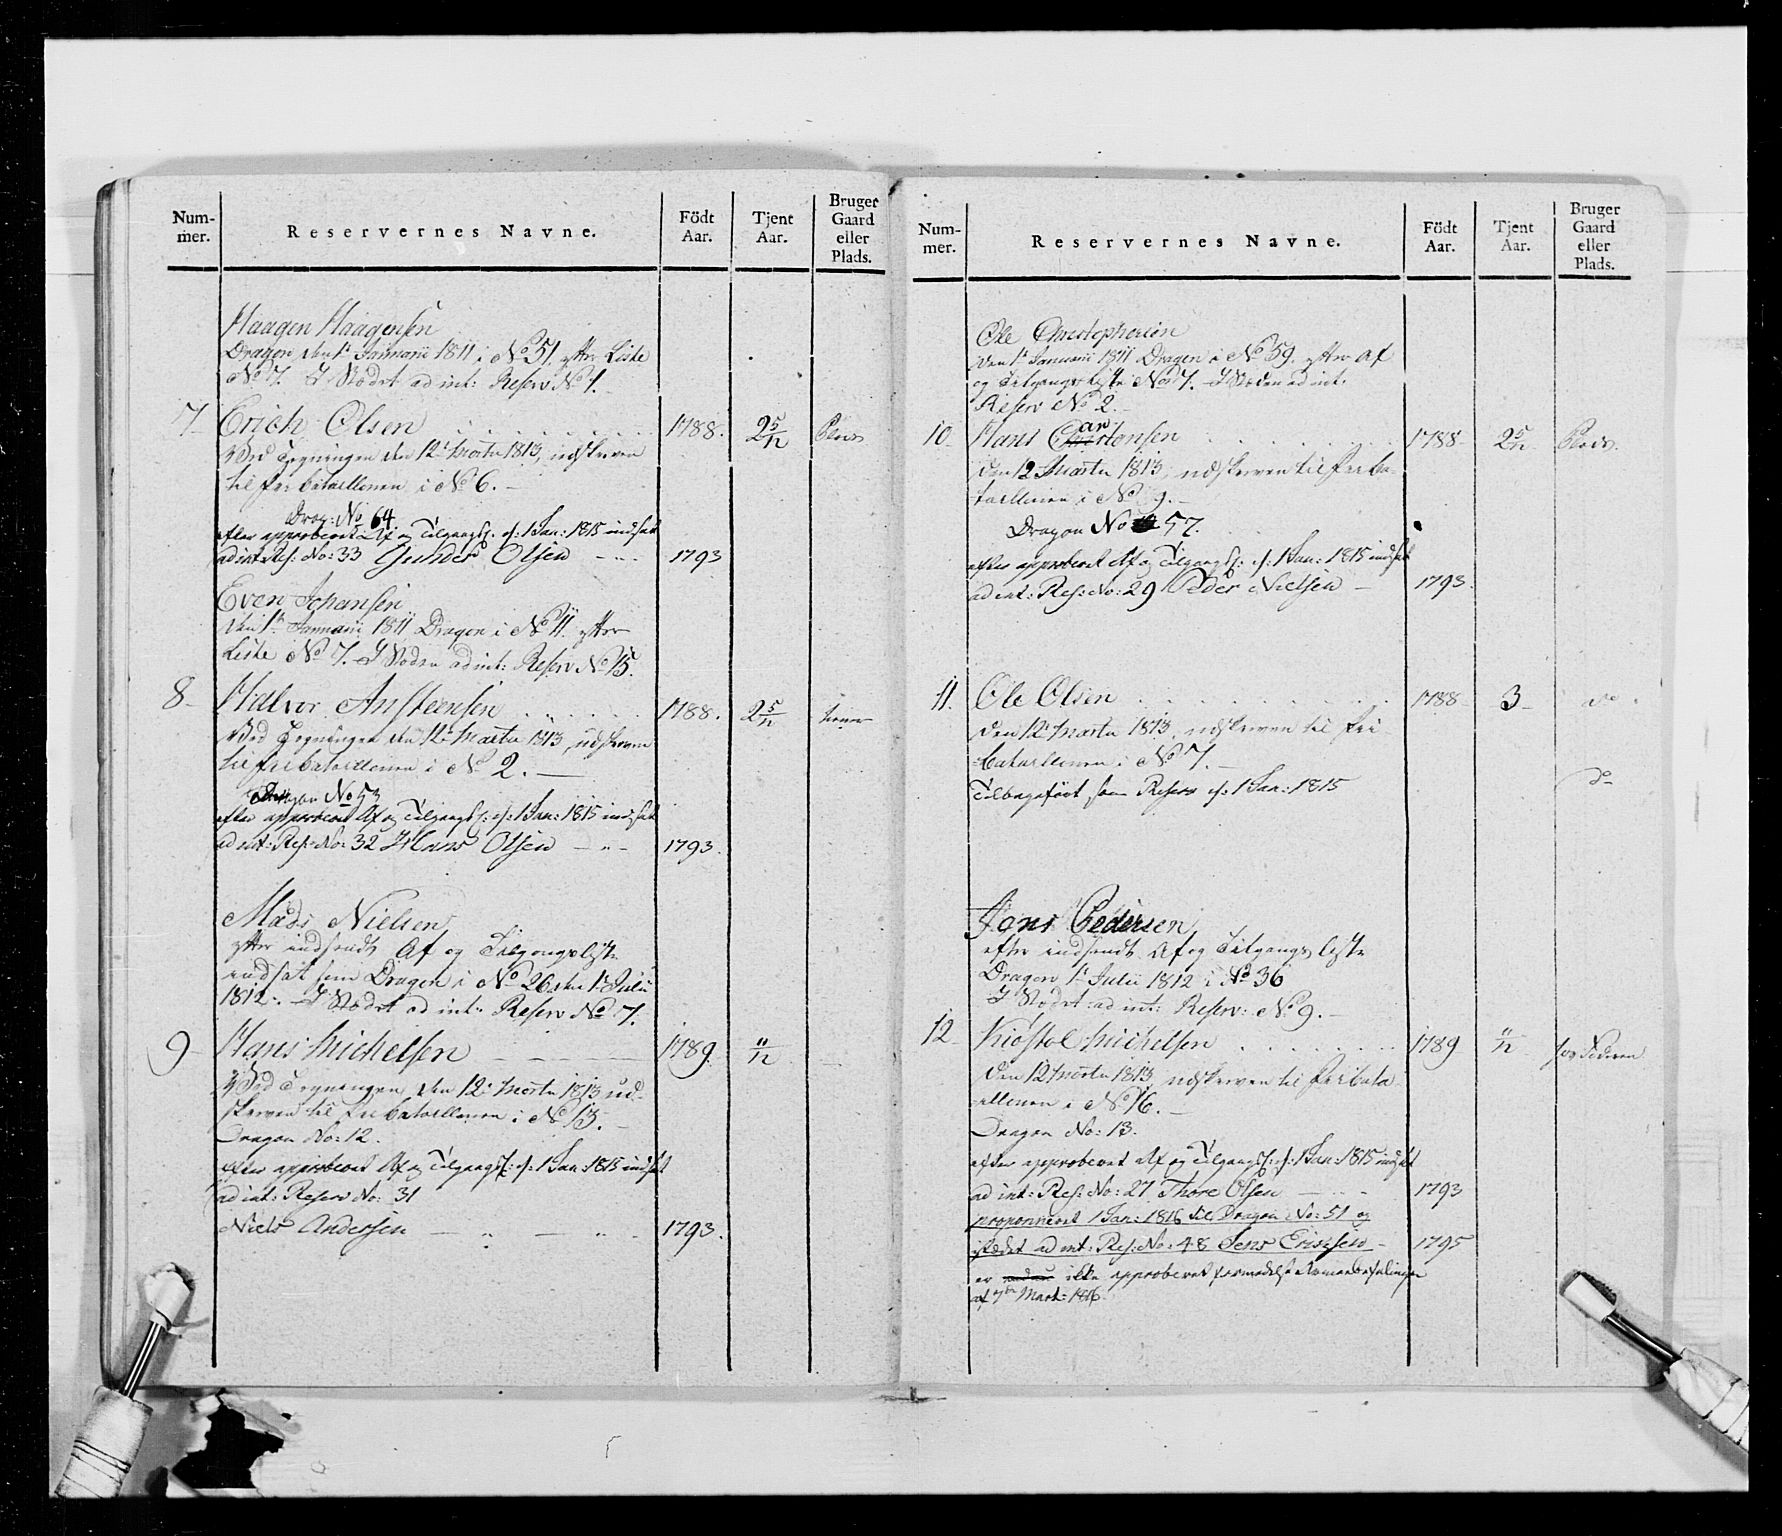 Num-
mer.
Reservernes Navne.
Födt
Aar.
Tjent
Aar.
Bruger
Gaard
eller
Plads.
Haagen Haagensen
Dragon den 1te Januarii 1811 i No 51. efter Liste
No 7. I Stedet ad int: Reserv No 1.
7 Erich Olsen 1788. 2 5/12 Plads
Ved Tegningen den 12te Martii 1813, udskreven
til Fribataillonen i No 6.
Drag: No 64.
efter approberet Af og Tilgangsl: af: 1 Jan: 1815 indsat
ad int: Res: No: 33 Gunder Olsen 1793
Even Johansen
den 1te Januarii 1811 Dragon i No 11. efter
Liste No 7. I Steden ad int: Reserv No 15.
8 Halvor Ansteensen 1788. 2 5/12
Ved Tegningen den 12te Martii 1813, udskreven
til Fribataillonen i No 2.
Dragon No 53
efter approberet Af og Tilgangsl: af: 1 Jan: 1815 indsat
ad int: Res: No: 32 Hans Olsen 1793.
Mads Nielsen
efter indsendt Af og Tilgangsliste
indsat som Dragon i No 26 den 1te Julii
1812. I Stedet ad int: Reserv No 7.
9 Hans Michelsen 1789. 11/12
Ved Tegningen den 12te Martii 1813 ud-
skreven til Fribataillonen i No 13.
Dragon No: 12.
efter approberet Af og Tilgangsl: af: 1 Jan: 1815 indsat
ad int: Reserv No: 31
Niels Andersen 1793.
Num-
mer.
Reservernes Navne.
Födt
Aar.
Tjent
Aar.
Bruger
Gaard
eller
Plads.
Ole Christophersen
den 1te Januarii 1811 Dragon i No 59. efter Af
og Tilgangs Liste No 7. I Steden ad int:
Reserv No 2.
10 Hans Carstensen 1788 2 5/12 Plads.
den 12 Martii 1813, udskreven til Friba-
taillonen i No 9.
Dragon No 57.
efter approberet Af og Tilgangsl: af: 1 Jan: 1815 indsat
ad int: Res: No: 29 Peder Nielsen 1793.
11. Ole Olsen 1788 3 do
den 12te Martii 1813, udskreven til Fri-
bataillonen i No 7.
Tilbageført som Reserv af: 1 Jan: 1815 do
Jens Pedersen
efter indsendt Af og Tilgangs liste
Dragon 1te Julii 1812 i No 36
I Stedet ad int: Reserv: No 9.
12 Kiøstol Michelsen 1789 11/12 hos Faderen
den 12 Martii 1813 udskreven til Fribata-
illonen i No 16.
Dragon No: 13.
efter approberet Af og Tilgangsl: af: 1 Jan: 1815 indsat
ad int: Res: No: 27 Thore Olsen 1793
proponneret 1 Jan: 1816 til Dragon No: 51 og
istædet ad int: Res: No: 48 Jens Erichsen 1795
er ikke approberet formedelst
af 7de Marti 1816.